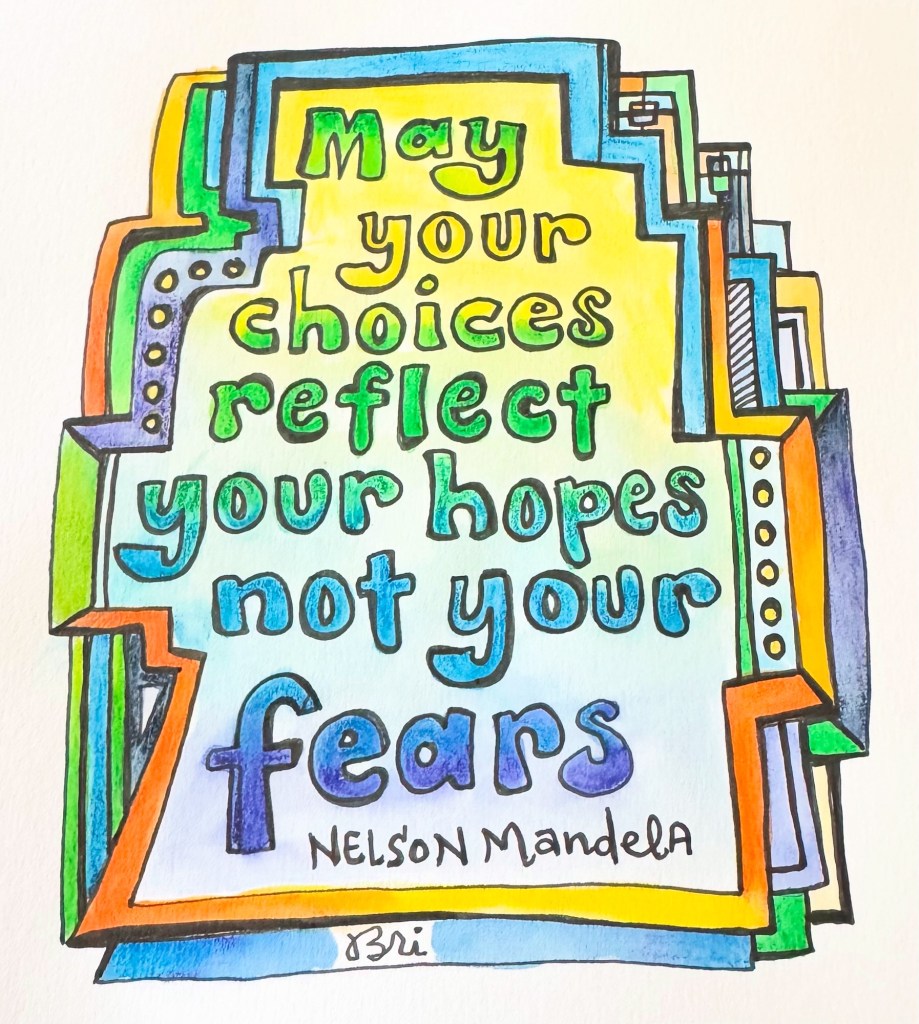 May
your
choices
reflect
your hopes
not your
fears
NELSON MandelA
Bri